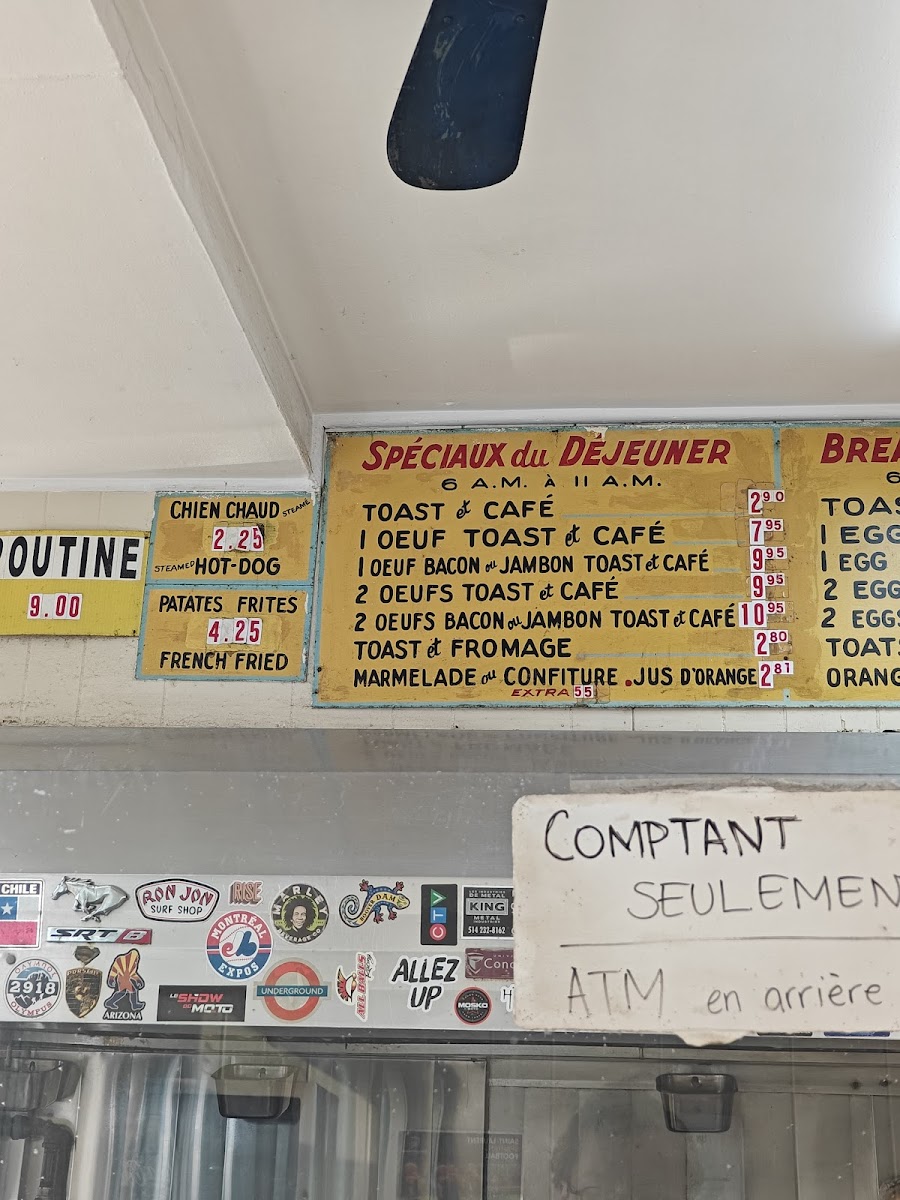 POUTINE
9.00
CHIEN CHAUD STEAMÉ
2.25
STEAMED HOT-DOG
PATATES FRITES
4.25
FRENCH FRIED
SPÉCIAUX du DÉJEUNER
6 A.M. À 11 A.M.
TOAST et CAFÉ 2 90
1 OEUF TOAST et CAFÉ 7 95
1 OEUF BACON ou JAMBON TOAST et CAFÉ 9 95
2 OEUFS TOAST et CAFÉ 9 95
2 OEUFS BACON ou JAMBON TOAST et CAFÉ 10 95
TOAST et FROMAGE 2 80
MARMELADE ou CONFITURE . JUS D'ORANGE 2 81
EXTRA 55
BREA
6
TOAS
1 EGG
1 EGG
2 EGG
2 EGGS
TOATS
ORANG
COMPTANT
SEULEMEN
ATM en arrière
CHILE
RON JON
SURF SHOP
RISE
MARLEY
BEVERAGE CO
HOOVER DAM
CTV
LES INDUSTRIES
DE METAL
KING
METAL
INDUSTRIES
514 232-8162
SRT 8
MONTRÉAL
EXPOS
2918
OLYMPUS
PURSANG
ARIZONA
LE SHOW
DU MOTO
UNDERGROUND
ALLEZ
UP
MOSKO
Conc
H